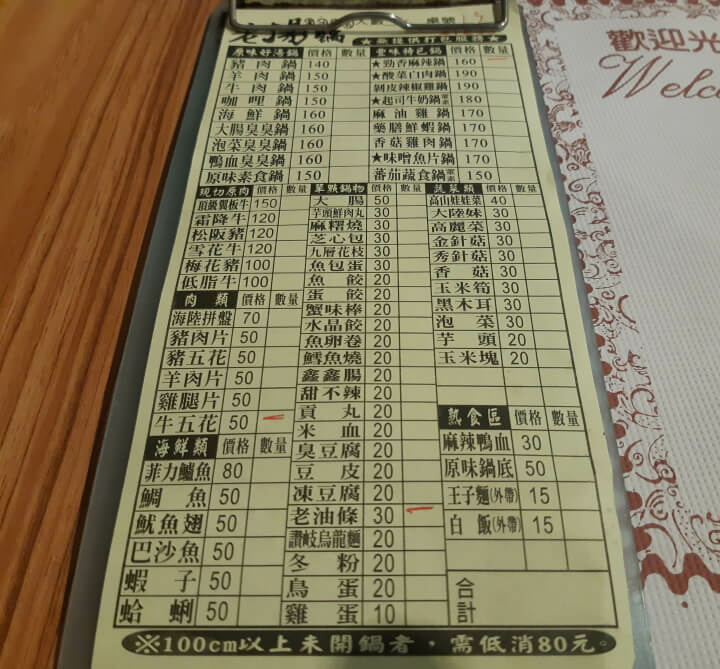 老湯鍋 人數 桌號
★無提供打包服務★
原味好湯鍋 價格 數量
豬肉鍋 140
羊肉鍋 150
牛肉鍋 150
咖哩鍋 150
海鮮鍋 160
大腸臭臭鍋 160
泡菜臭臭鍋 160
鴨血臭臭鍋 160
原味素食鍋 150
現切原肉 價格 數量
頂級翼板牛 150
霜降牛 120
松阪豬 120
雪花牛 120
梅花豬 100
低脂牛 100
肉類 價格 數量
海陸拼盤 70
豬肉片 50
豬五花 50
羊肉片 50
雞腿片 50
牛五花 50
海鮮類 價格 數量
菲力鱸魚 80
鯛魚 50
魷魚翅 50
巴沙魚 50
蝦子 50
蛤蜊 50
豐味特色鍋 價格 數量
★勁香麻辣鍋 160
★酸菜白肉鍋 190
剝皮辣椒雞鍋 190
★起司牛奶鍋 180
麻油雞鍋 170
藥膳鮮蝦鍋 170
香菇雞肉鍋 170
★味噌魚片鍋 170
蕃茄蔬食鍋 150
單點鍋物 價格 數量
大腸 50
芋頭鮮肉丸 30
麻糬燒 30
芝心包 30
九層花枝 30
魚包蛋 30
魚餃 20
蛋餃 20
蟹味棒 20
水晶餃 20
魚卵卷 20
鱈魚燒 20
鑫鑫腸 20
甜不辣 20
貢丸 20
米血 20
臭豆腐 20
豆皮 20
凍豆腐 20
老油條 30
讚岐烏龍麵 20
冬粉 20
鳥蛋 20
雞蛋 10
蔬菜類 價格 數量
高山娃娃菜 40
大陸妹 30
高麗菜 30
金針菇 30
秀針菇 30
香菇 30
玉米筍 30
黑木耳 30
泡菜 30
芋頭 20
玉米塊 20
熟食區 價格 數量
麻辣鴨血 30
原味鍋底 50
王子麵(外帶) 15
白飯(外帶) 15
合計
※100cm以上未開鍋者，需低消80元。
歡迎光
Welc